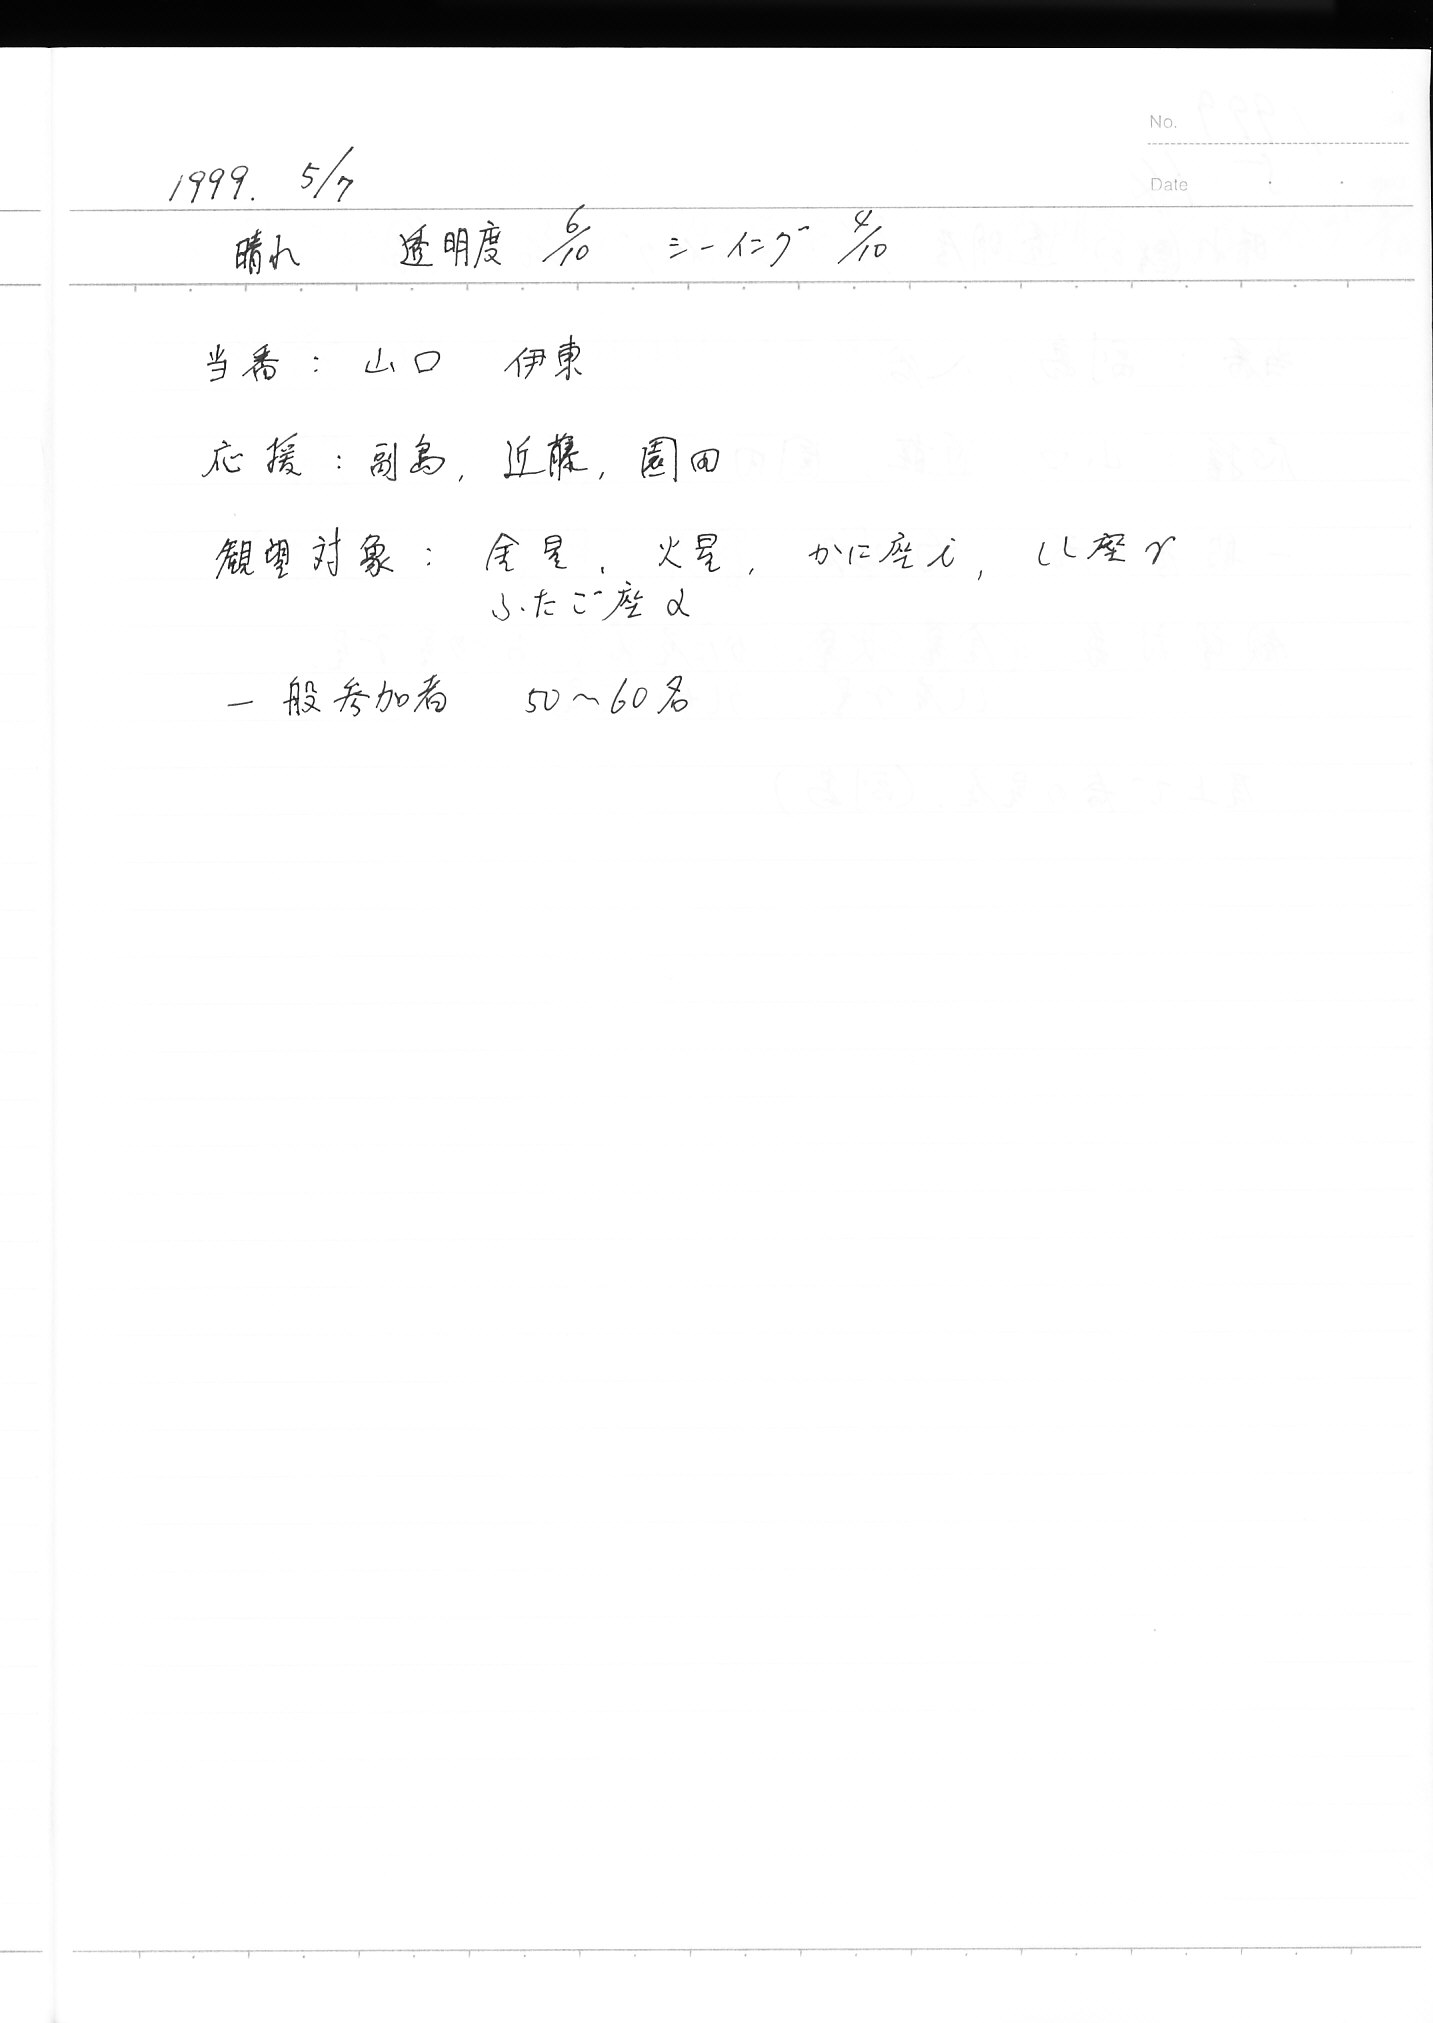 No.
Date
1999. 5/7
晴れ 透明度 6/10 シーイング 4/10
当番: 山口 伊東
応援: 副島, 近藤, 園田
観望対象: 金星, 火星, かに座i, しし座γ
ふたご座α
一般参加者 50〜60名